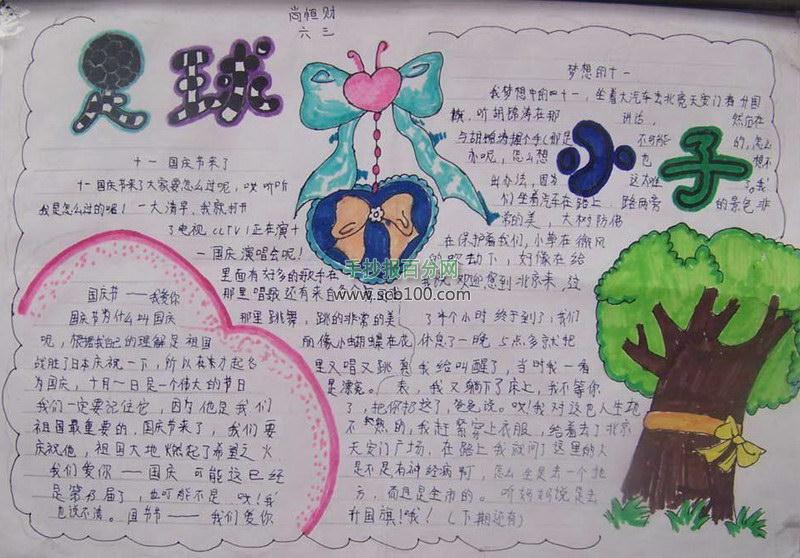 尚恒财
六三
足球
小子
十一国庆节来了
十一国庆节来了大家要怎么过呢，哎听听
我是怎么过的喔！一大清早，我就打开
了电视CCTV1正在演十
一国庆演唱会呢！
里面有好多的歌手在
那里唱歌还有来自
那里跳舞，跳的非常的美
丽像小蝴蝶在花
里又唱又跳
是漂亮。
国庆节——我爱你
国庆节为什么叫国庆
呢，根据我自己的理解是祖国
战胜了日本庆祝一下，所以在东方起飞
为国庆，十月一日是一个伟大的节日
我们一定要记住它，因为他是我们
祖国最重要的，国庆节来了，我们要
庆祝他，祖国大地燃起了希望之火
我们爱你——国庆可能这已经
是第 届了，也可能不是，哎！我
也说不清。国节——我们爱你
梦想的十一
我梦想中的 十一，坐着大汽车去北京天安门看分国
旗，听胡锦涛在那讲话，然后在
与胡锦涛握个手（那是不可能的，怎么
办呢，怎么想也想不
出办法，因为这太难了。我
们坐着汽车在路上，路两旁的景色非
常的美，大树防佛
在保护着我们，小草在微风
吹动下，好像在给
我说欢迎您到北京来，这
了半个小时终于到了，我们
休息了一晚，5点多就把
我给叫醒了，当时我一看
表，我又躺下了床上，我不等你
了，把你扔这了，爸爸说。哎！我对这也人生地
不熟的，我赶紧穿上衣服，给着去了北京
天安门广场，在路上我就问了这里的人
是不是有神经病啊，怎么 是去一个地
方，而且是全市的。听妈妈说是去
升国旗！哦！（下期还有）
手抄报百分网
www.scb100.com